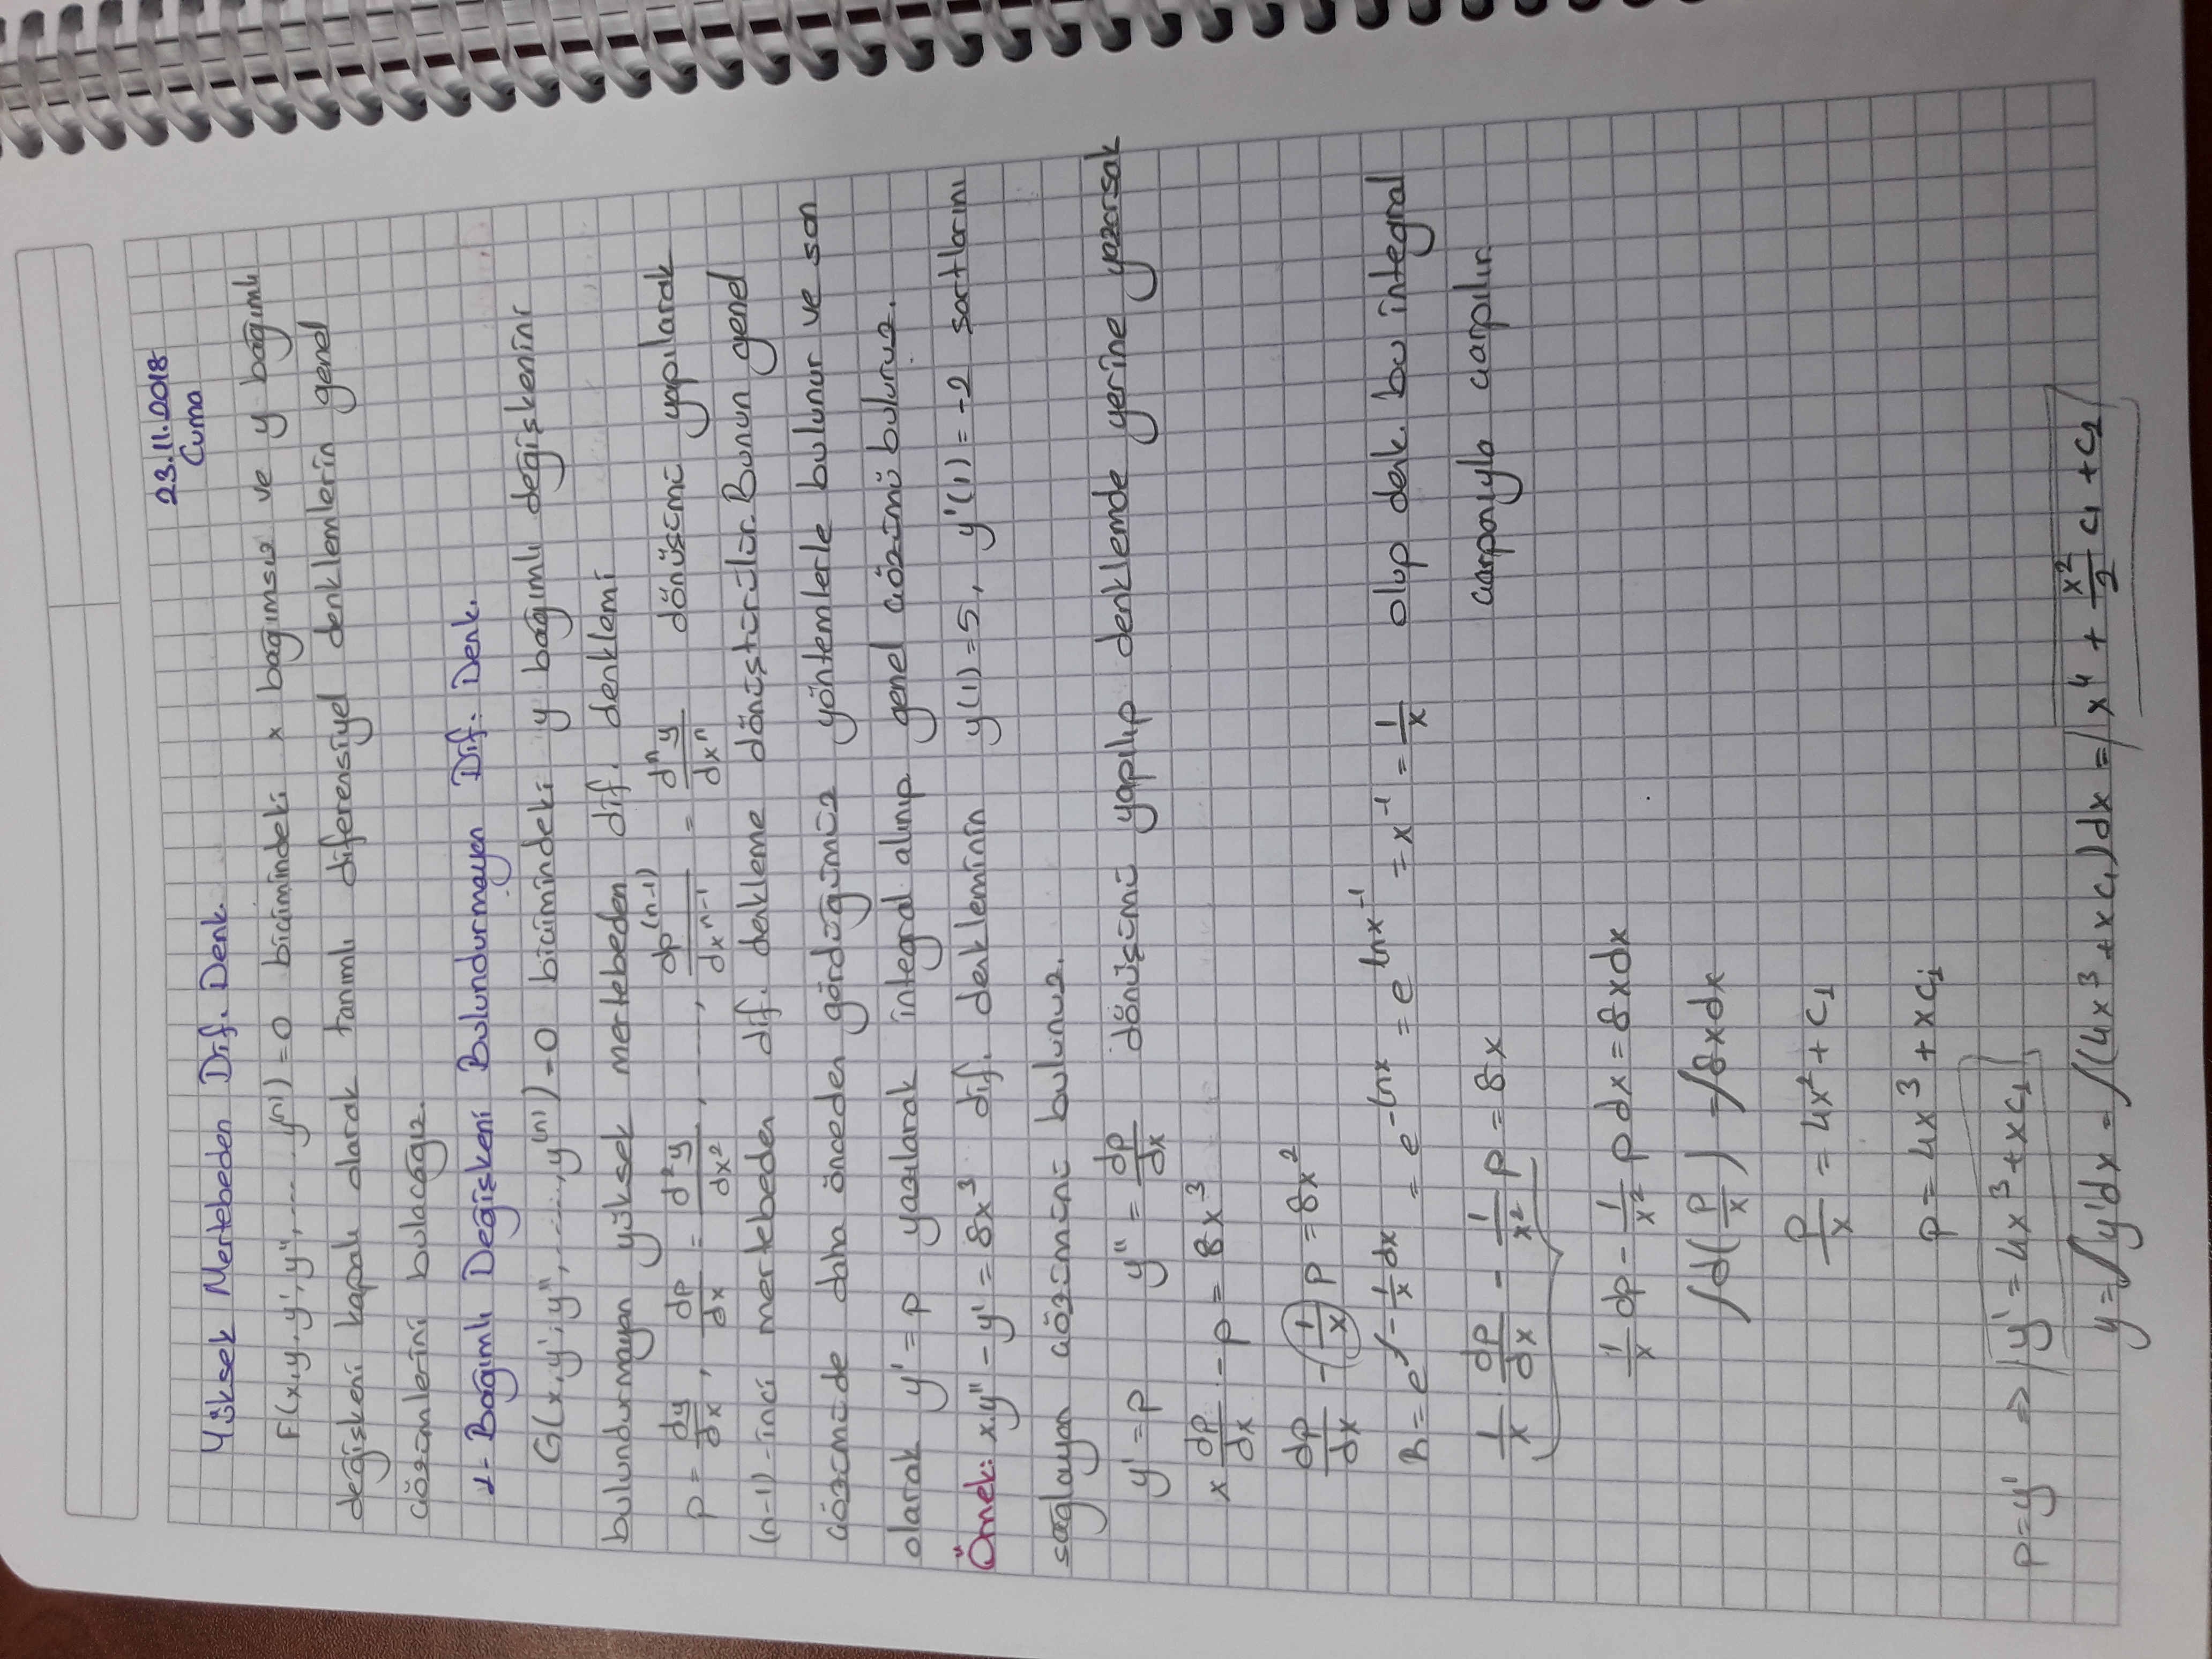 23.11.2018
Cuma
Yüksek Mertebeden Dif. Denk.
F(x,y,y',y'',....y⁽ⁿ⁾)=0 biçimindeki x bağımsız ve y bağımlı
değişkeni kapalı olarak tanımlı diferensiyel denklemlerin genel
çözümlerini bulacağız.
1- Bağımlı Değişkeni Bulundurmayan Dif. Denk.
G(x,y',y'',.....,y⁽ⁿ⁾)=0 biçimindeki y bağımlı değişkenini
bulundurmayan yüksek mertebeden dif. denklemi
p = dy/dx, dp/dx = d²y/dx², ....., dp⁽ⁿ⁻¹⁾/dxⁿ⁻¹ = dⁿy/dxⁿ dönüşümü yapılarak
(n-1)-inci mertebeden dif. denkleme dönüştürülür. Bunun genel
çözümüde daha önceden gördüğümüz yöntemlerle bulunur ve son
olarak y' = p yazılarak integral alınıp genel çözümü buluruz.
Örnek: x.y'' - y' = 8x³ dif. denkleminin y(1)=5, y'(1)=-2 şartlarını
sağlayan çözümünü bulunuz.
y' = p y'' = dp/dx dönüşümü yapılıp denklemde yerine yazarsak
x dp/dx - p = 8x³
dp/dx - (1/x) p = 8x²
λ = e^∫-1/x dx = e^-lnx = e^lnx⁻¹ = x⁻¹ = 1/x olup denk. bu integral
çarpanıyla çarpılır.
1/x dp/dx - 1/x² p = 8x
1/x dp - 1/x² p dx = 8x dx
∫d(p/x) = ∫8x dx
p/x = 4x² + c₁
p = 4x³ + xc₁
p=y' ⇒ y' = 4x³ + xc₁
y = ∫y'dx = ∫(4x³ + xc₁)dx = x⁴ + x²/2 c₁ + c₂